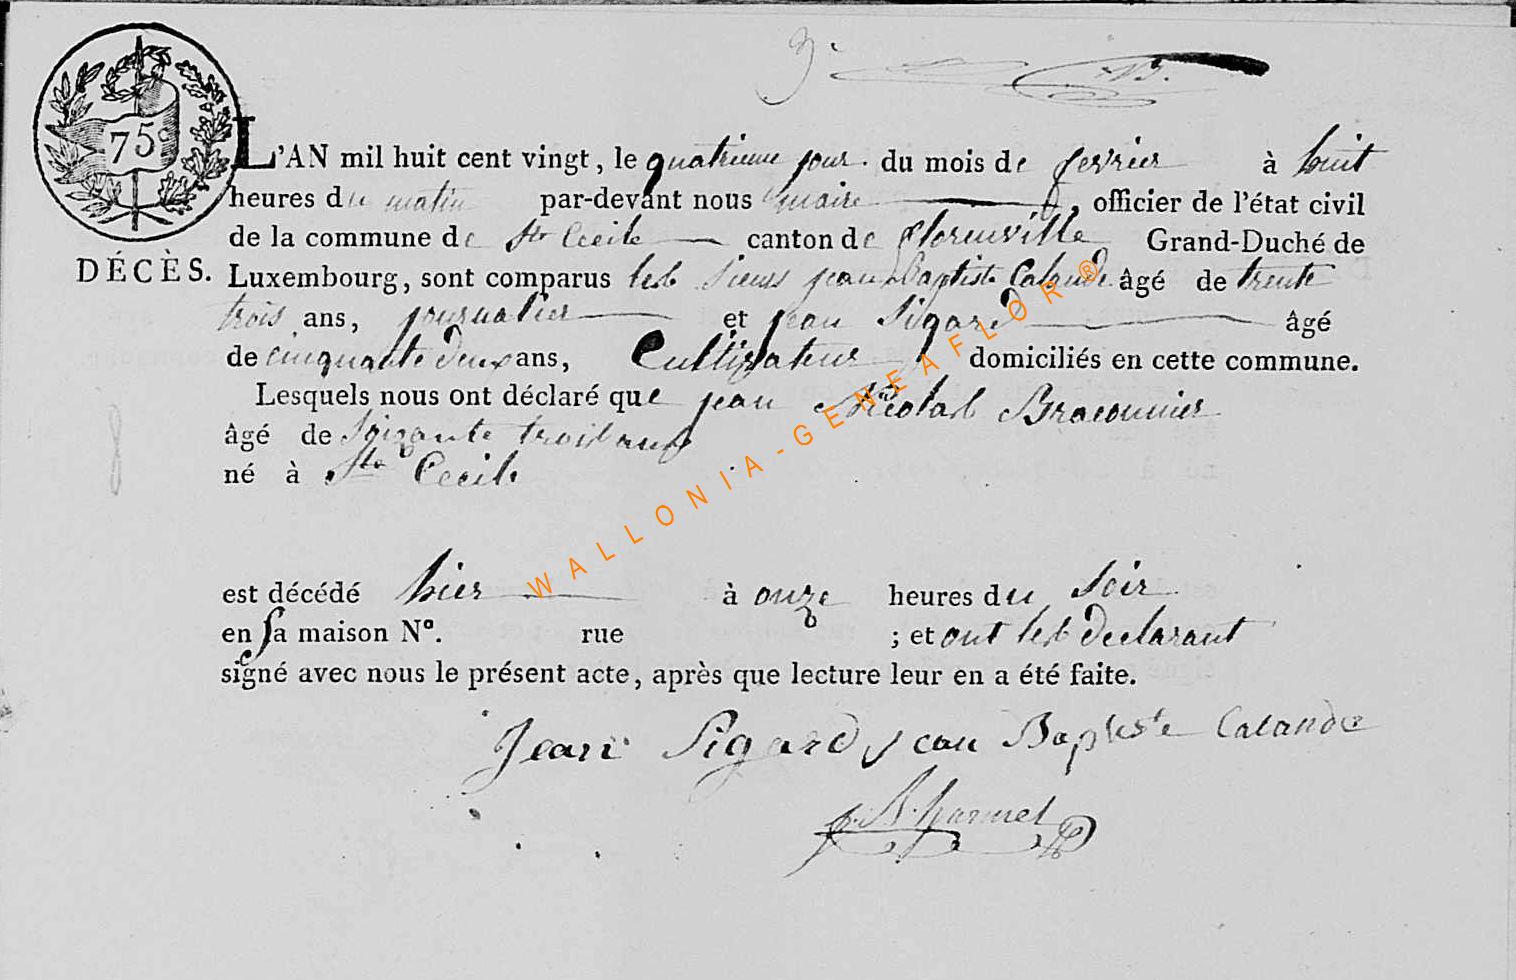 3.
75c
L'AN mil huit cent vingt, le quatrieme jour du mois de fevrier à huit
heures du matin par-devant nous maire , officier de l'état civil
de la commune de Ste Cecile canton de florenville Grand-Duché de
DÉCÈS. Luxembourg, sont comparus les Sieurs jean Baptiste Calande âgé de trente
trois ans, journalier et jean Sigard âgé
de cinquante deux ans, Cultivateur domiciliés en cette commune.
Lesquels nous ont déclaré que jean Nicolas Braconnier
âgé de Soixante trois ans
né à Ste Cecile
est décédé hier à onze heures du Soir
en sa maison Nº. rue ; et ont les declarant
signé avec nous le présent acte, après que lecture leur en a été faite.
Jean Sigard jean Baptiste Calande
WALLONIA-GENEAFLOR®